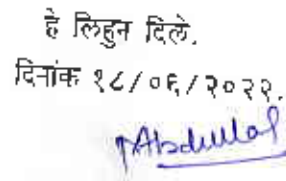 हे लिहुन दिले.
दिनांक १८/०६/२०२२.
Abdullal